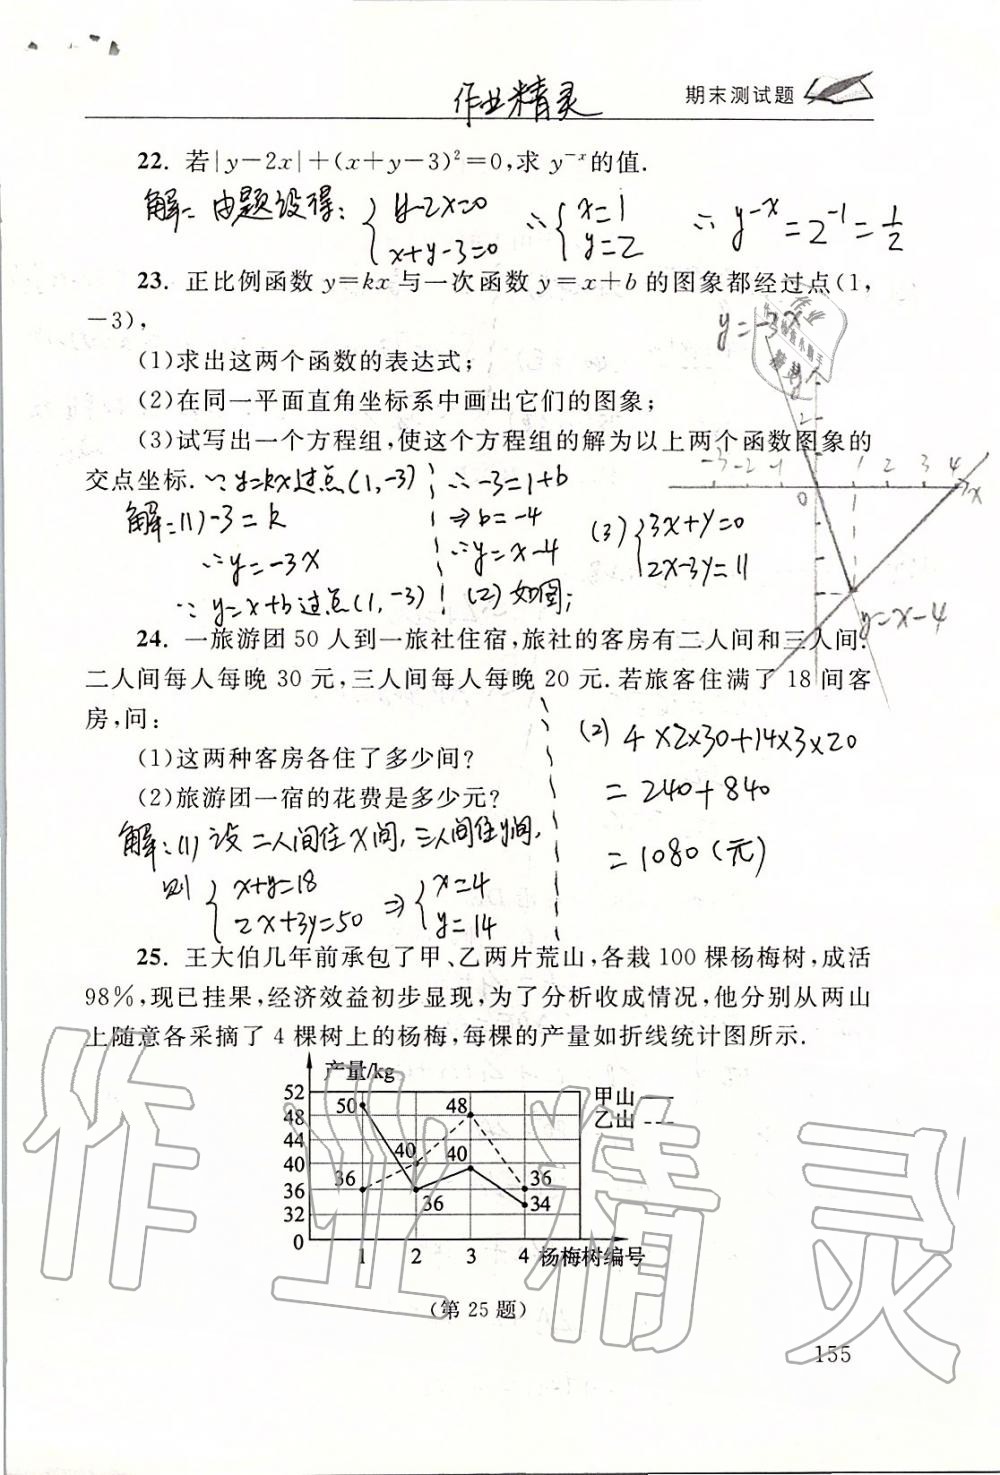 作业精灵
期末测试题
22. 若|y-2x|+(x+y-3)²=0,求 y⁻ˣ的值.
解: 由题设得: { y-2x=0 ∴ { x=1 ∴ y⁻ˣ=2⁻¹=1/2
x+y-3=0 y=2
23. 正比例函数 y=kx 与一次函数 y=x+b 的图象都经过点(1,
-3),
y=-3x
(1)求出这两个函数的表达式;
(2)在同一平面直角坐标系中画出它们的图象;
(3)试写出一个方程组,使这个方程组的解为以上两个函数图象的
交点坐标. ∵ y=kx过点(1,-3) ∴ -3=1+b
解:(1) -3=k ⇒ b=-4
∴ y=-3x ∴ y=x-4
∵ y=x+b过点(1,-3) (2) 如图;
(3) { 3x+y=0
2x-3y=11
y
2
-3 -2 -1 0 1 2 3 4 x
y=x-4
24. 一旅游团 50 人到一旅社住宿,旅社的客房有二人间和三人间.
二人间每人每晚 30 元,三人间每人每晚 20 元.若旅客住满了 18 间客
房,问:
(1)这两种客房各住了多少间?
(2)旅游团一宿的花费是多少元?
解:(1) 设二人间住x间,三人间住y间,
则 { x+y=18 ⇒ { x=4
2x+3y=50 y=14
(2) 4×2×30+14×3×20
=240+840
=1080(元)
25. 王大伯几年前承包了甲、乙两片荒山,各栽 100 棵杨梅树,成活
98%,现已挂果,经济效益初步显现,为了分析收成情况,他分别从两山
上随意各采摘了 4 棵树上的杨梅,每棵的产量如折线统计图所示.
产量/kg
52
48
44
40
36
32
0
50
36
40
36
48
40
36
34
甲山 ——
乙山 ---
1 2 3 4 杨梅树编号
(第 25 题)
155
作业精灵